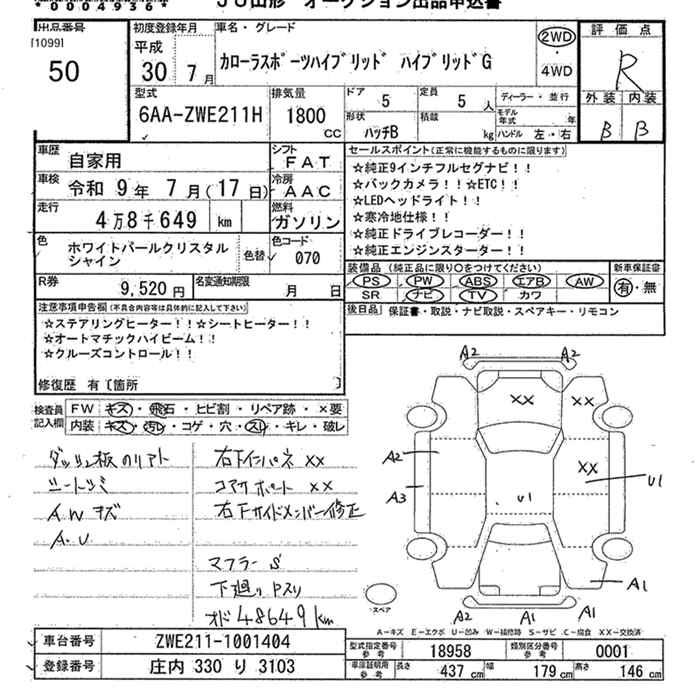 *00049364*
JU山形 オークション出品申込書
出品番号
[1099]
50
初度登録年月
平成
30年 7月
車名・グレード
カローラスポーツハイブリッド ハイブリッドG
2WD
・
4WD
評価点
R
外装 内装
B B
型式
6AA-ZWE211H
排気量
1800
cc
ドア
5
定員
5 人
形状
ハッチB
積載
kg
ディーラー・並行
モデル年式 年
ハンドル 左・右
車歴
自家用
シフト
FAT
車検
令和 9年 7月(17日)
冷房
AAC
走行
4万8千649 km
燃料
ガソリン
色
ホワイトパールクリスタル
シャイン
色替
色コード
070
R券
9,520円
名変通知期限
月 日
セールスポイント(正常に機能するものに限ります)
☆純正9インチフルセグナビ!!
☆バックカメラ!!☆ETC!!
☆LEDヘッドライト!!
☆寒冷地仕様!!
☆純正ドライブレコーダー!!
☆純正エンジンスターター!!
装備品(純正品に限り○をつけてください)
PS PW ABS エアB AW
SR ナビ TV カワ
新車保証書
有・無
後日品 保証書・取説・ナビ取説・スペアキー・リモコン
注意事項申告欄(不具合内容等は具体的に記入して下さい)
☆ステアリングヒーター!!☆シートヒーター!!
☆オートマチックハイビーム!!
☆クルーズコントロール!!
修復歴 有〔箇所 〕
検査員
記入欄
FW キズ・飛石・ヒビ割・リペア跡・×要
内装 キズ・汚レ・コゲ・穴・スレ・キレ・破レ
シートシミ
AWキズ
A.U
右下インパネ XX
コアサポート XX
右下サイドメンバー修正
マフラーS
下廻りPスリ
オド48649km
A2 A2
XX XX
A2
A3
XX
U1
U1
A1
A2 A1 A1
スペア
A-キズ E-エクボ U-凹み W-補修跡 S-サビ C-腐食 XX-交換済
車台番号 ZWE211-1001404
登録番号 庄内 330 り 3103
型式指定番号 参考 18958
類別区分番号 参考 0001
車庫証明用 参考 長さ 437 cm 幅 179 cm 高さ 146 cm